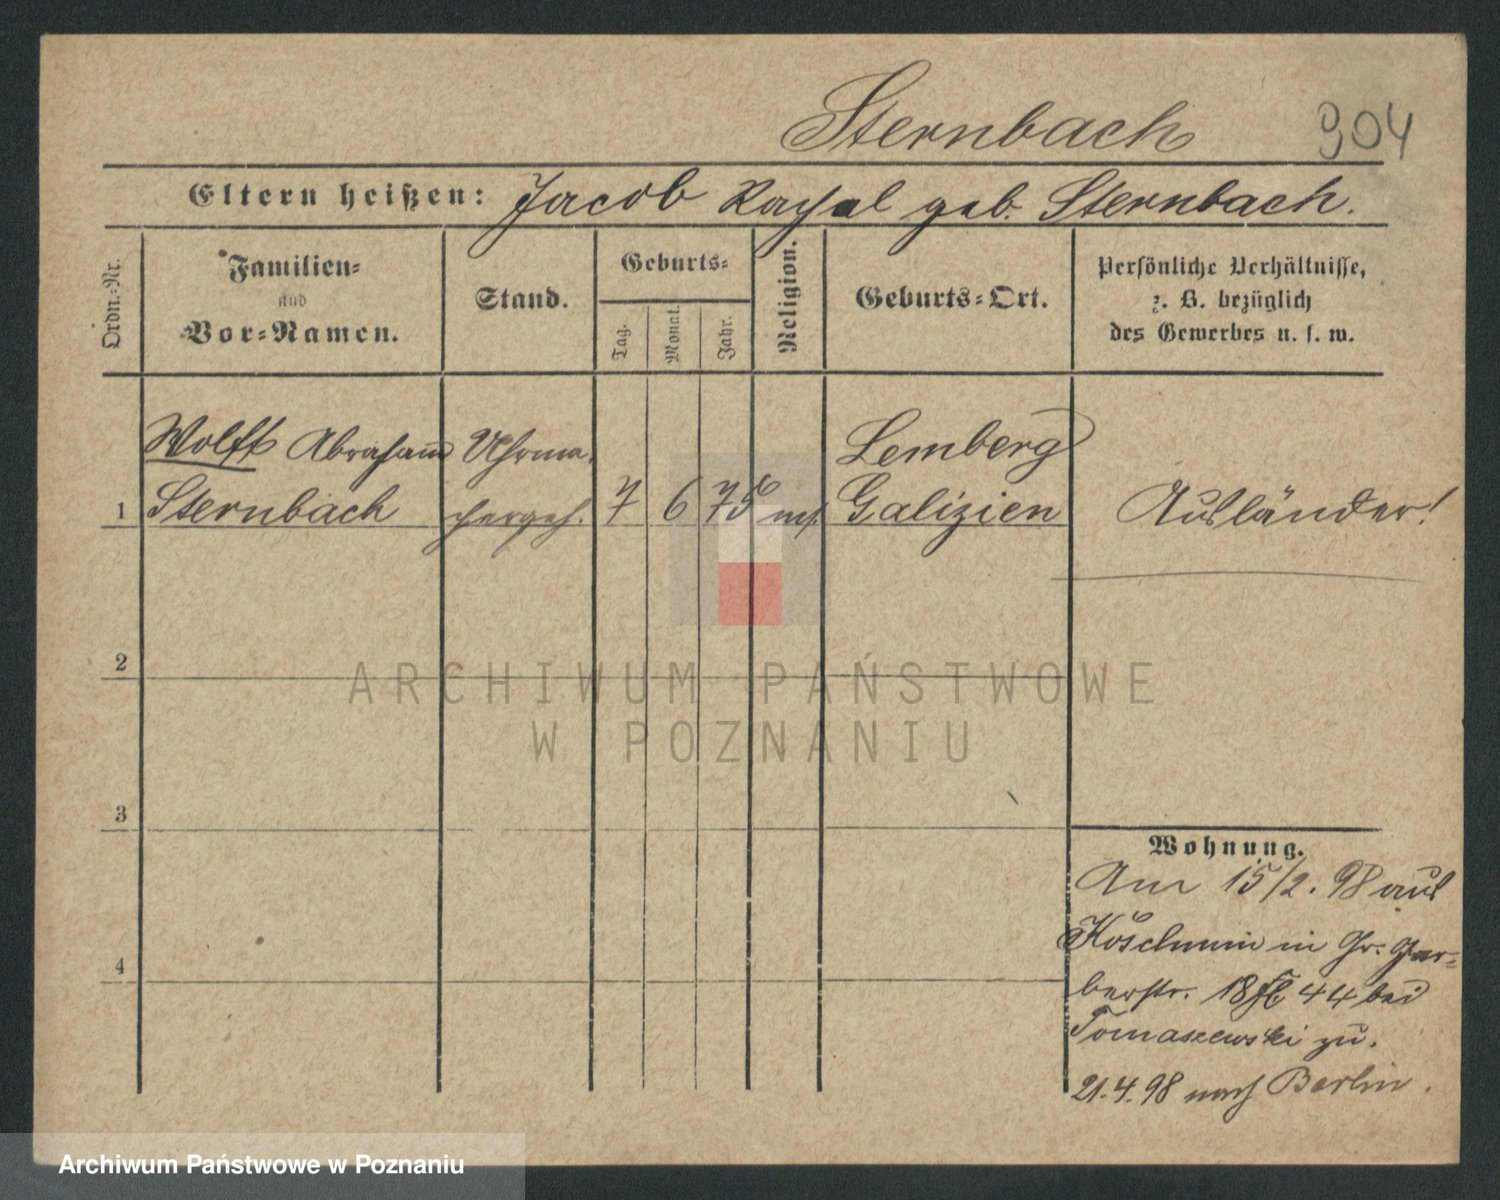 Sternbach 904
Eltern heißen: Jacob Rachel geb. Sternbach.
Ordn.-Nr.
Familien-
und
Vor-Namen.
Stand.
Geburts-
Tag.
Monat.
Jahr.
Religion.
Geburts-Ort.
Persönliche Verhältnisse,
z. B. bezüglich
des Gewerbes u. s. w.
1
Wolff Abraham
Sternbach
Uhrma-
chergeh.
7 6 75
mos.
Lemberg
Galizien
Ausländer!
2
3
4
Wohnung.
Am 15/2. 98 aus
Koschmin in Gr. Ger-
berstr. 18 44 bei
Tomaszewski zu.
21.4.98 nach Berlin.
ARCHIWUM PAŃSTWOWE
W POZNANIU
Archiwum Państwowe w Poznaniu